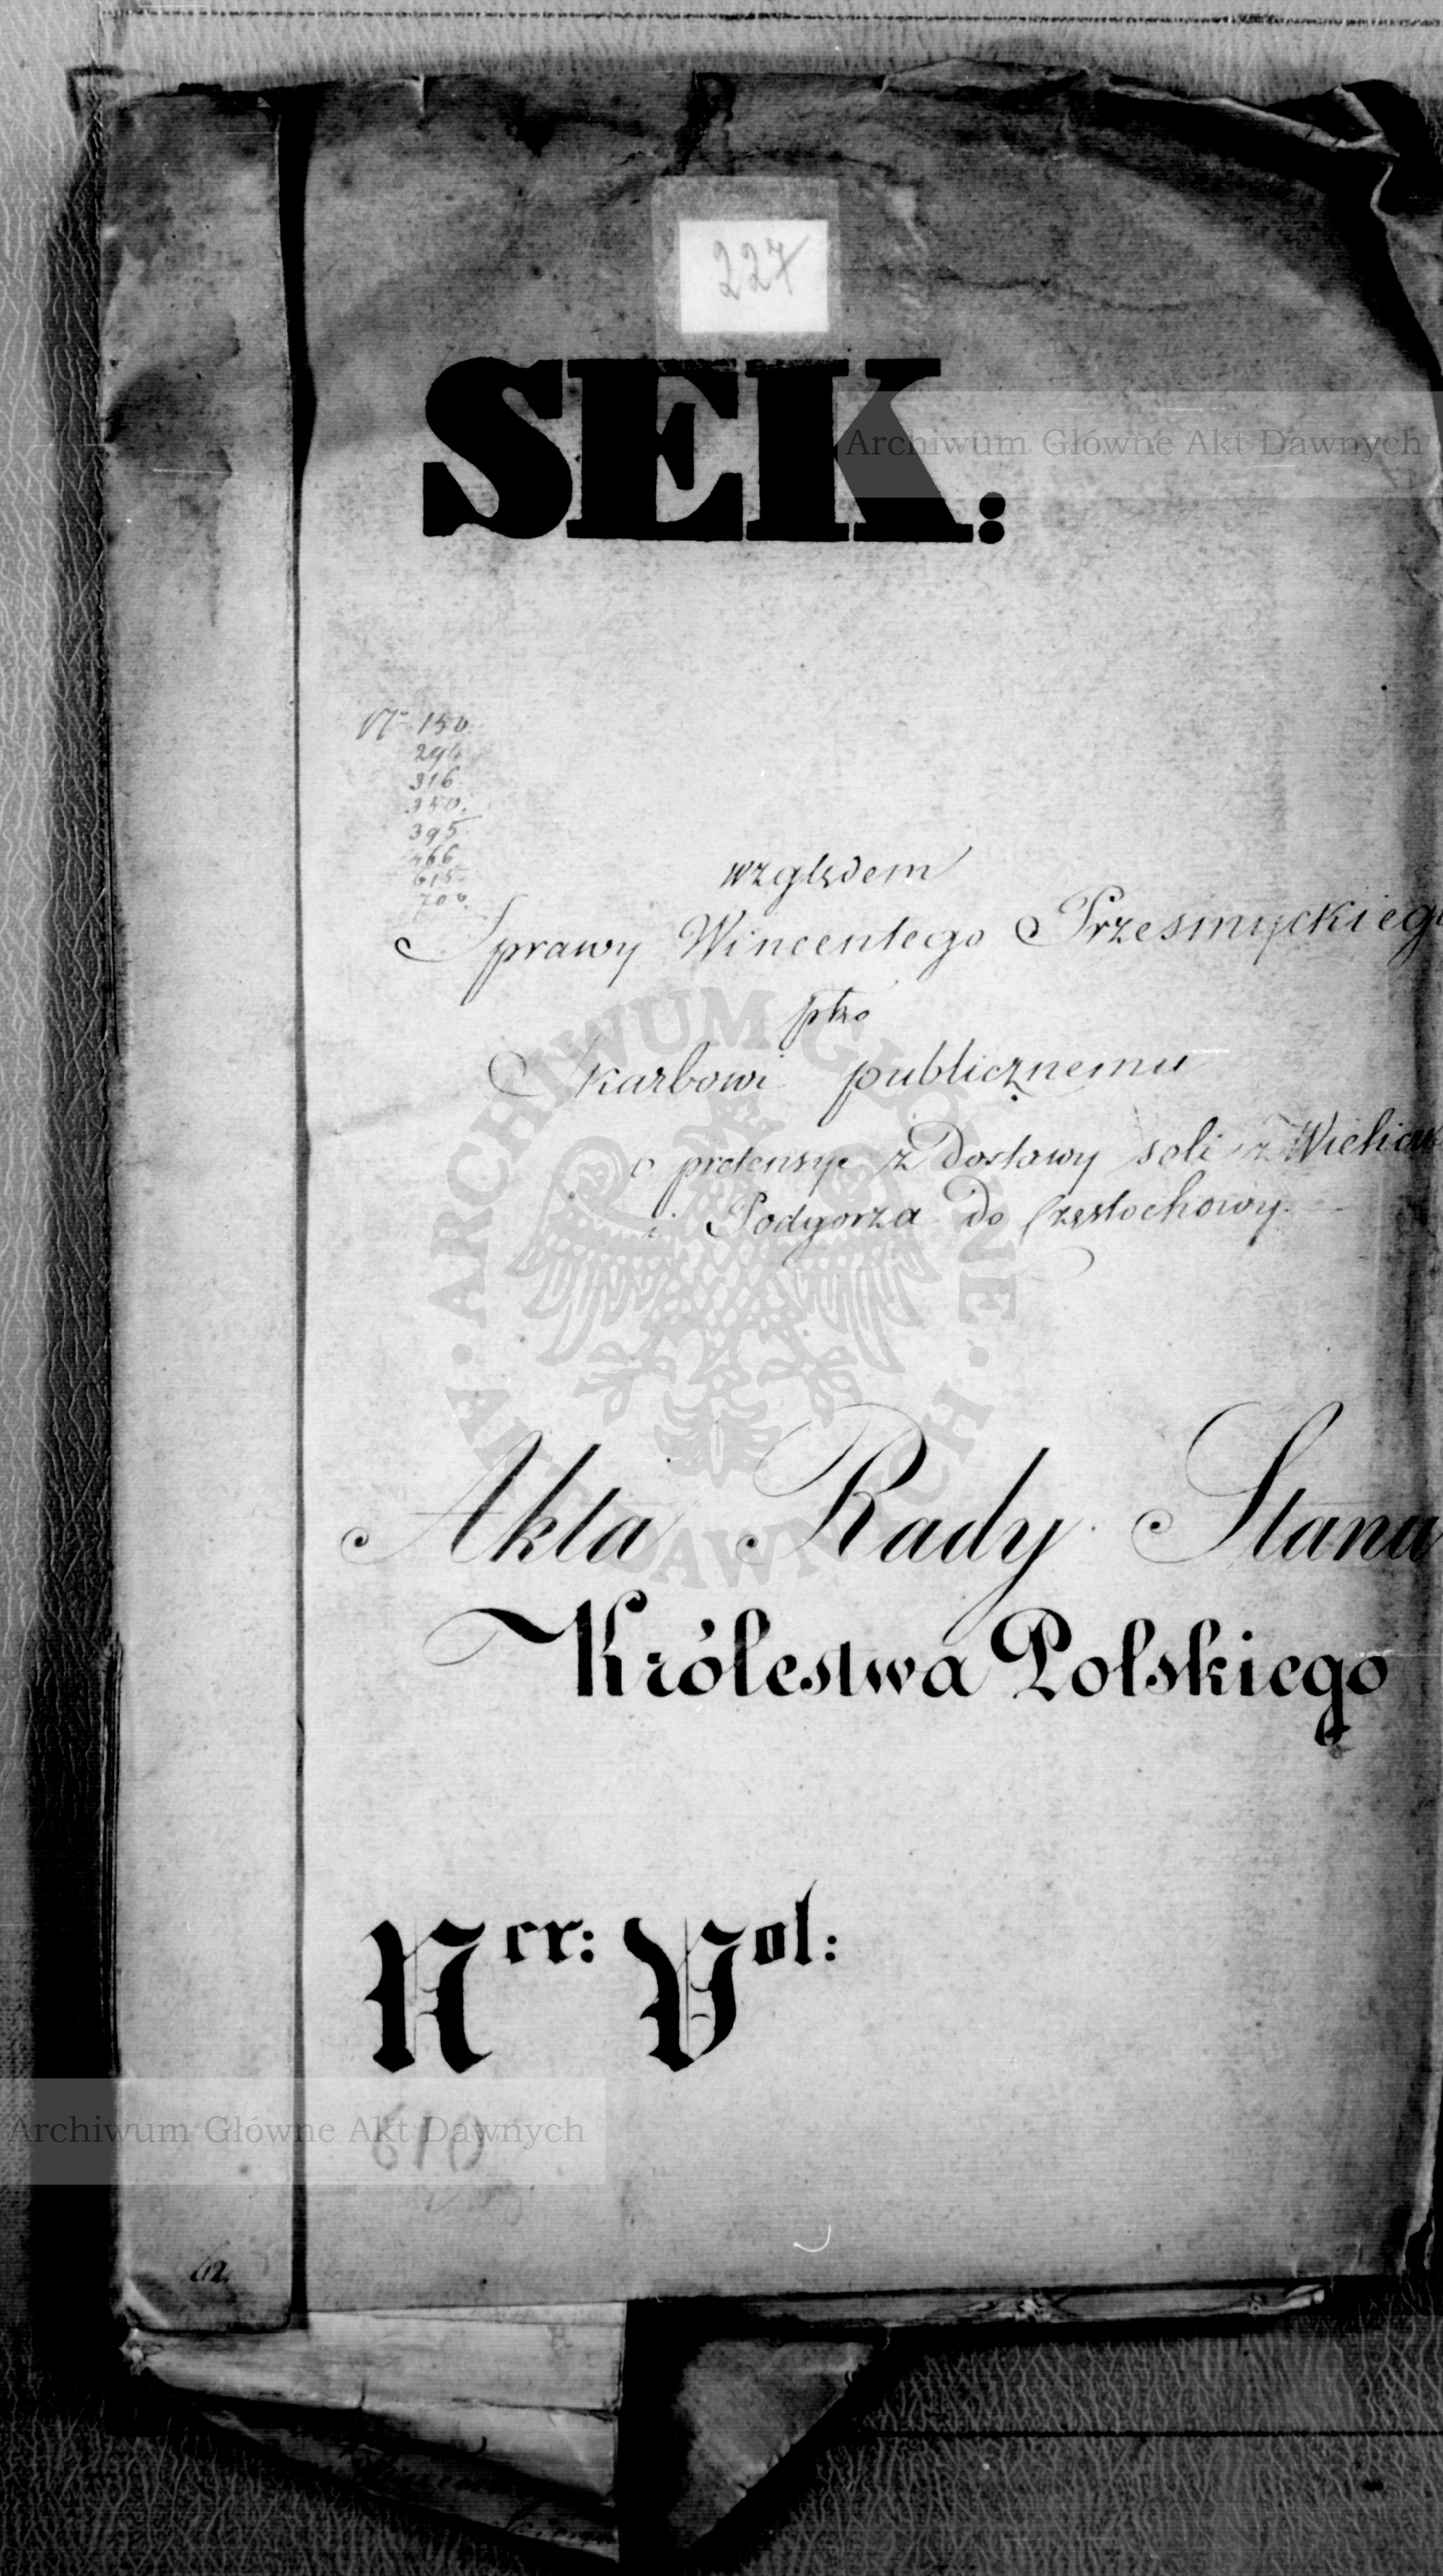 227
SEK:
Archiwum Główne Akt Dawnych
No 150.
294
316
350.
395
466
615
700.
względem
Sprawy Wincentego Przesmyckiego
ptko
Skarbowi publicznemu
o pretensye z Dostawy soli z Wielicz
i Podgorza do Częstochowy.
ARCHIWUM GŁÓWNE AKT DAWNYCH
Akta Rady Stanu
Królestwa Polskiego
Ner: Vol:
Archiwum Główne Akt Dawnych
610